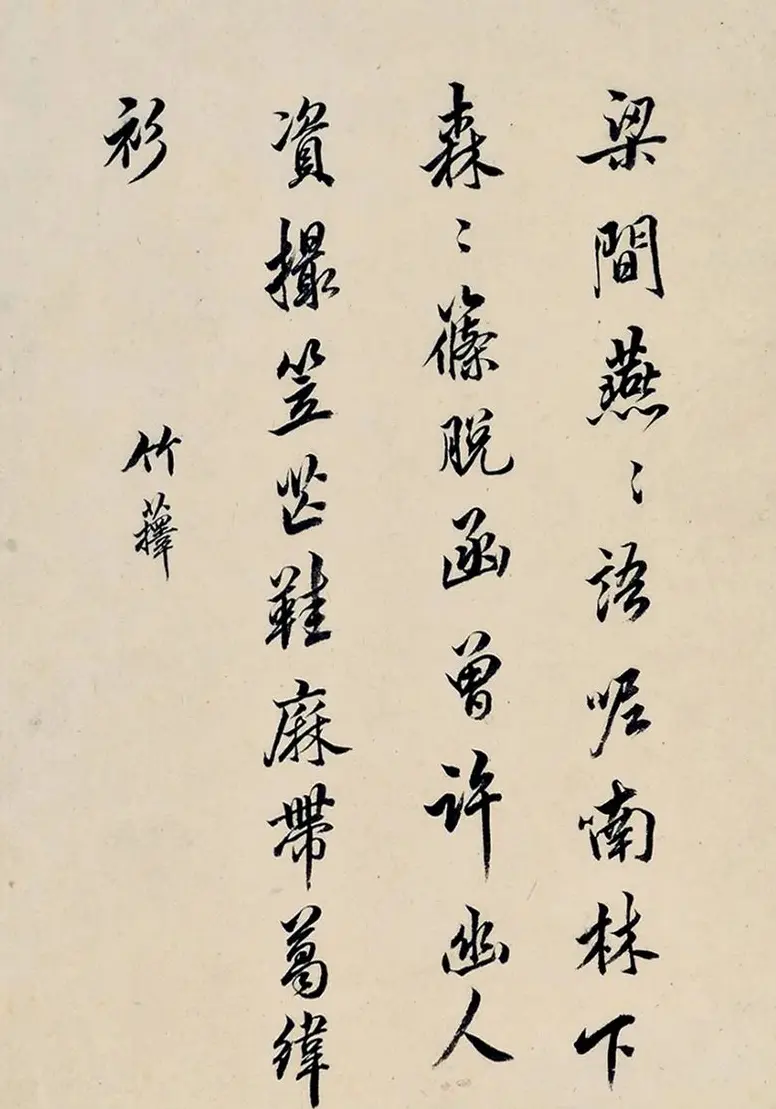 梁間燕〻語呢喃林下
森〻篠脫函曾許幽人
資撮笠芒鞋麻帶葛緯
衫
竹蘀